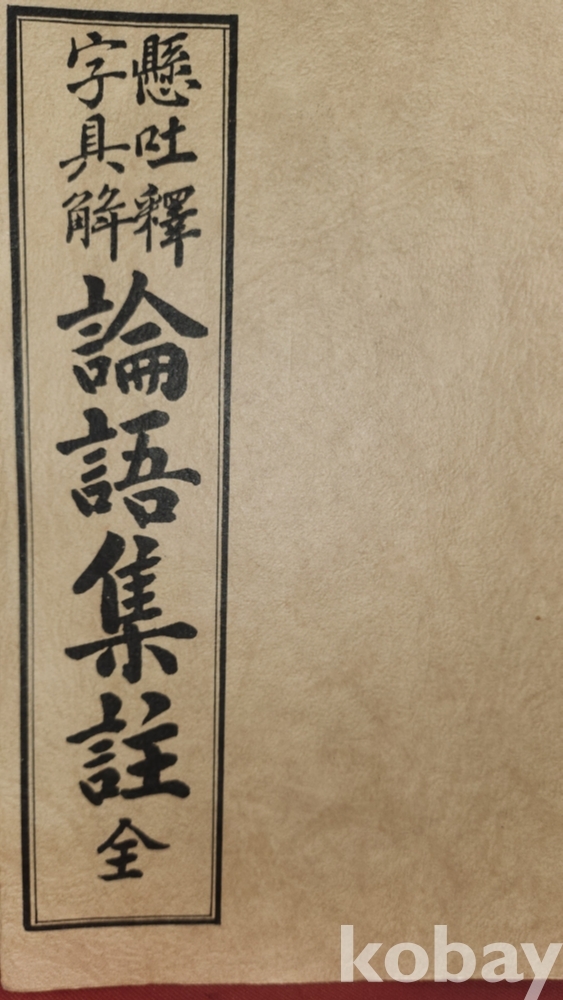 懸吐釋
字具解
論語集註
全
kobay